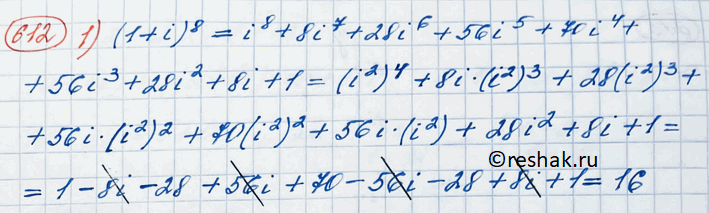 612 1) (1+i)⁸ = i⁸ + 8i⁷ + 28i⁶ + 56i⁵ + 70i⁴ +
+ 56i³ + 28i² + 8i + 1 = (i²)⁴ + 8i·(i²)³ + 28(i²)³ +
+ 56i·(i²)² + 70(i²)² + 56i·(i²) + 28i² + 8i + 1 =
©reshak.ru
= 1 - 8i - 28 + 56i + 70 - 56i - 28 + 8i + 1 = 16